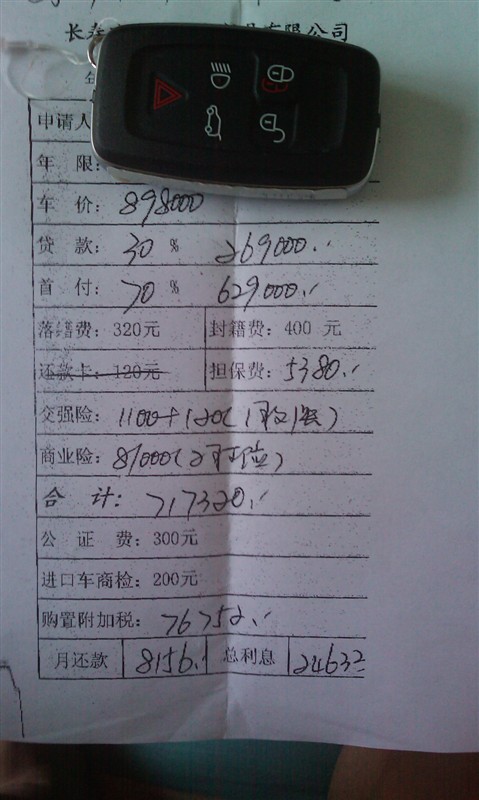 有限公司
申请人
年 限:
车 价: 898000
贷 款: 30 % 269000.
首 付: 70 % 629000.
落籍费: 320元 封籍费: 400 元
还款卡: 120元 担保费: 5380.
交强险: 1100+120(
商业险: 81000(2
合 计: 717320.
公 证 费: 300元
进口车商检: 200元
购置附加税: 76752.
月还款 8156. 总利息 24632